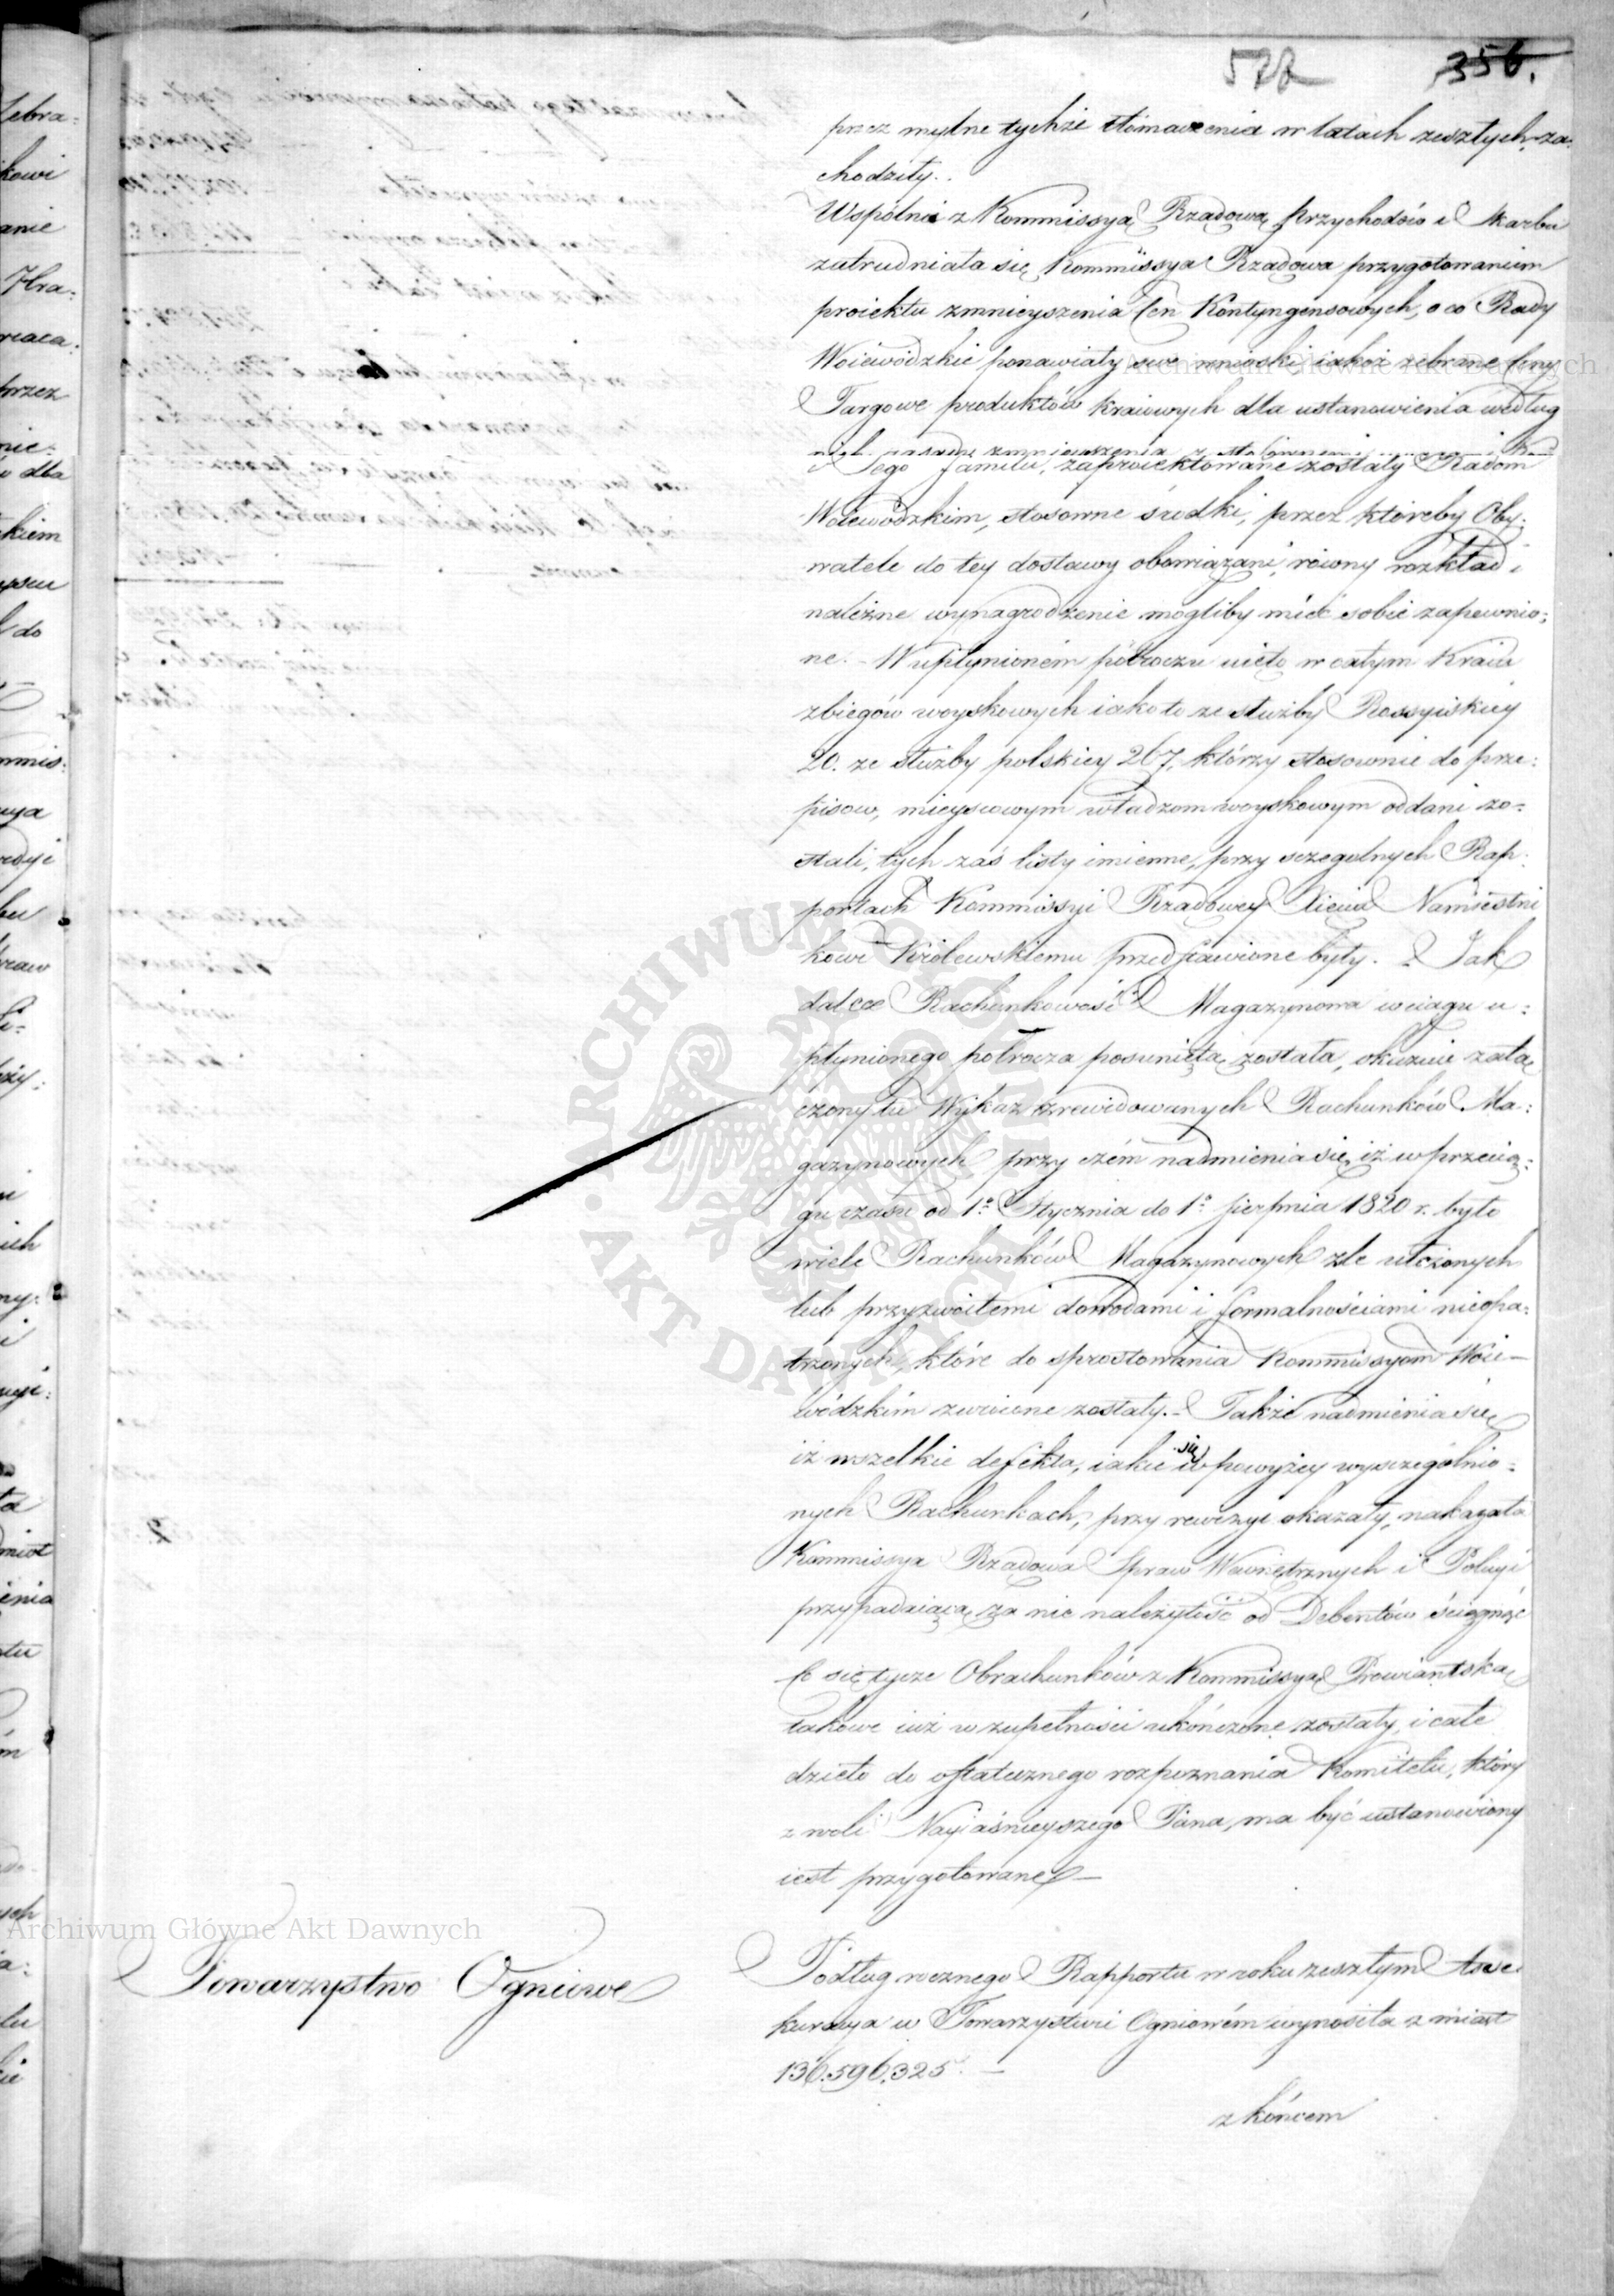 356.
przez mylne tychże tłómaczenia w latach zeszłych za:
chodziły.
Wspólnie z Kommissyą Rządową Przychodów i Skarbu
zatrudniała się Kommissya Rządowa przygotowaniem
proiektu zmnieyszenia Cen Kontyngensowych, o co Rady
Woiewódzkie ponawiały swe wnioski, iakoż zebrane Ceny
Targowe produktów kraiowych dla ustanowienia według
nich zasady zmnieyszenia
zaproiektowane zostały Radom
Woiewódzkim, stosowne środki, przez któreby Oby:
watele do tey dostawy obowiązani, równy rozkład i
należne wynagrodzenie mogliby mieć sobie zapewnio:
ne. – W upłynionem półroczu uięto w całym Kraiu
zbiegów woyskowych iako to ze służby Rossyiskiey
20. ze służby polskiey 267, którzy stosownie do prze:
pisow, mieyscowym władzom woyskowym oddani zo:
stali, tych zaś listy imienne, przy szczegolnych Rap:
portach Kommissyi Rządowey Xięciu Namiestni
kowi Królewskiemu przedstawione były. – Jak
dalece Rachunkowość Magazynowa w ciągu u:
płynionego półrocza posuniętą została, okazuie załą
czony tu Wykaz zrewidowanych Rachunków Ma:
gazynowych przy czém nadmienia się, iż w przecią:
gu czasu od 1o Stycznia do 1o Sierpnia 1820 r. było
wiele Rachunków Magazynowych źle ułożonych
lub przyzwoitemi dowodami i formalnościami nieopa:
trzonych, które do sprostowania Kommissyom Woie–
wódzkim zwrócone zostały. – Także nadmienia się
iż wszelkie defekta, iakie się w powyżey wyszczególnio:
nych Rachunkach, przy rewizyi okazały, nakazała
Kommissya Rządowa Spraw Wewnętrznych i Policyi
przypadaiącą za nie należytość od Debentów ściągnąć
Co się tycze Obrachunków z Kommissyą Prowiantską
takowe iuż w zupełności ukończone zostały, i całe
dzieło do ostatecznego rozpoznania Komitetu, który
z woli Nayiaśnieyszego Pana, ma być ustanowiony
iest przygotowane –
Towarzystwo Ogniowe
Podług rocznego Rapportu w roku zeszłym Asse:
kuracya w Towarzystwie Ogniowém wynosiła z miast
136.596.325. –
z końcem
Archiwum Główne Akt Dawnych
Archiwum Główne Akt Dawnych
ARCHIWUM GŁÓWNE
AKT DAWNYCH